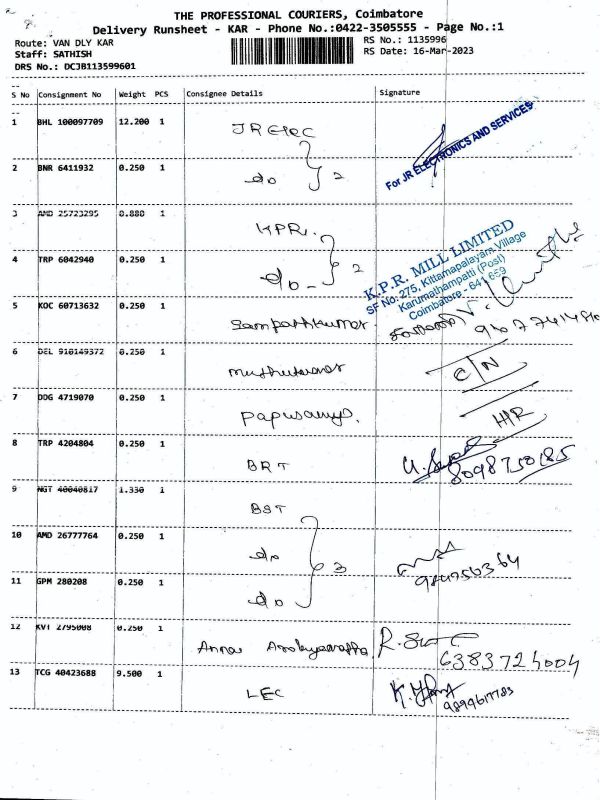 THE PROFESSIONAL COURIERS, Coimbatore
Delivery Runsheet - KAR - Phone No.:0422-3505555 - Page No.:1
Route: VAN DLY KAR RS No.: 1135996
Staff: SATHISH RS Date: 16-Mar-2023
DRS No.: DCJB113599601
S No Consignment No Weight PCS Consignee Details Signature
1 BHL 100097709 12.200 1 JR Elec
For JR ELECTRONICS AND SERVICES
2 BNR 6411932 0.250 1 do 2
3 AMD 25723295 0.880 1 KPR.
K.P.R. MILL LIMITED
SF No. 275, Kittampalayam Village
Karumathampatti (Post)
Coimbatore - 641 659
4 TRP 6042940 0.250 1 do 2
5 KOC 60713632 0.250 1 Sampathkumar
6 DEL 910149372 0.250 1 C/N
7 DDG 4719070 0.250 1 Papusamy. H/R
8 TRP 4204804 0.250 1 BRT
9 NGT 40040817 1.330 1 BST
10 AMD 26777764 0.250 1 do 3
11 GPM 280208 0.250 1 do
12 KVT 2795008 0.250 1 Anna 6383724004
13 TCG 40423688 9.500 1 LEC